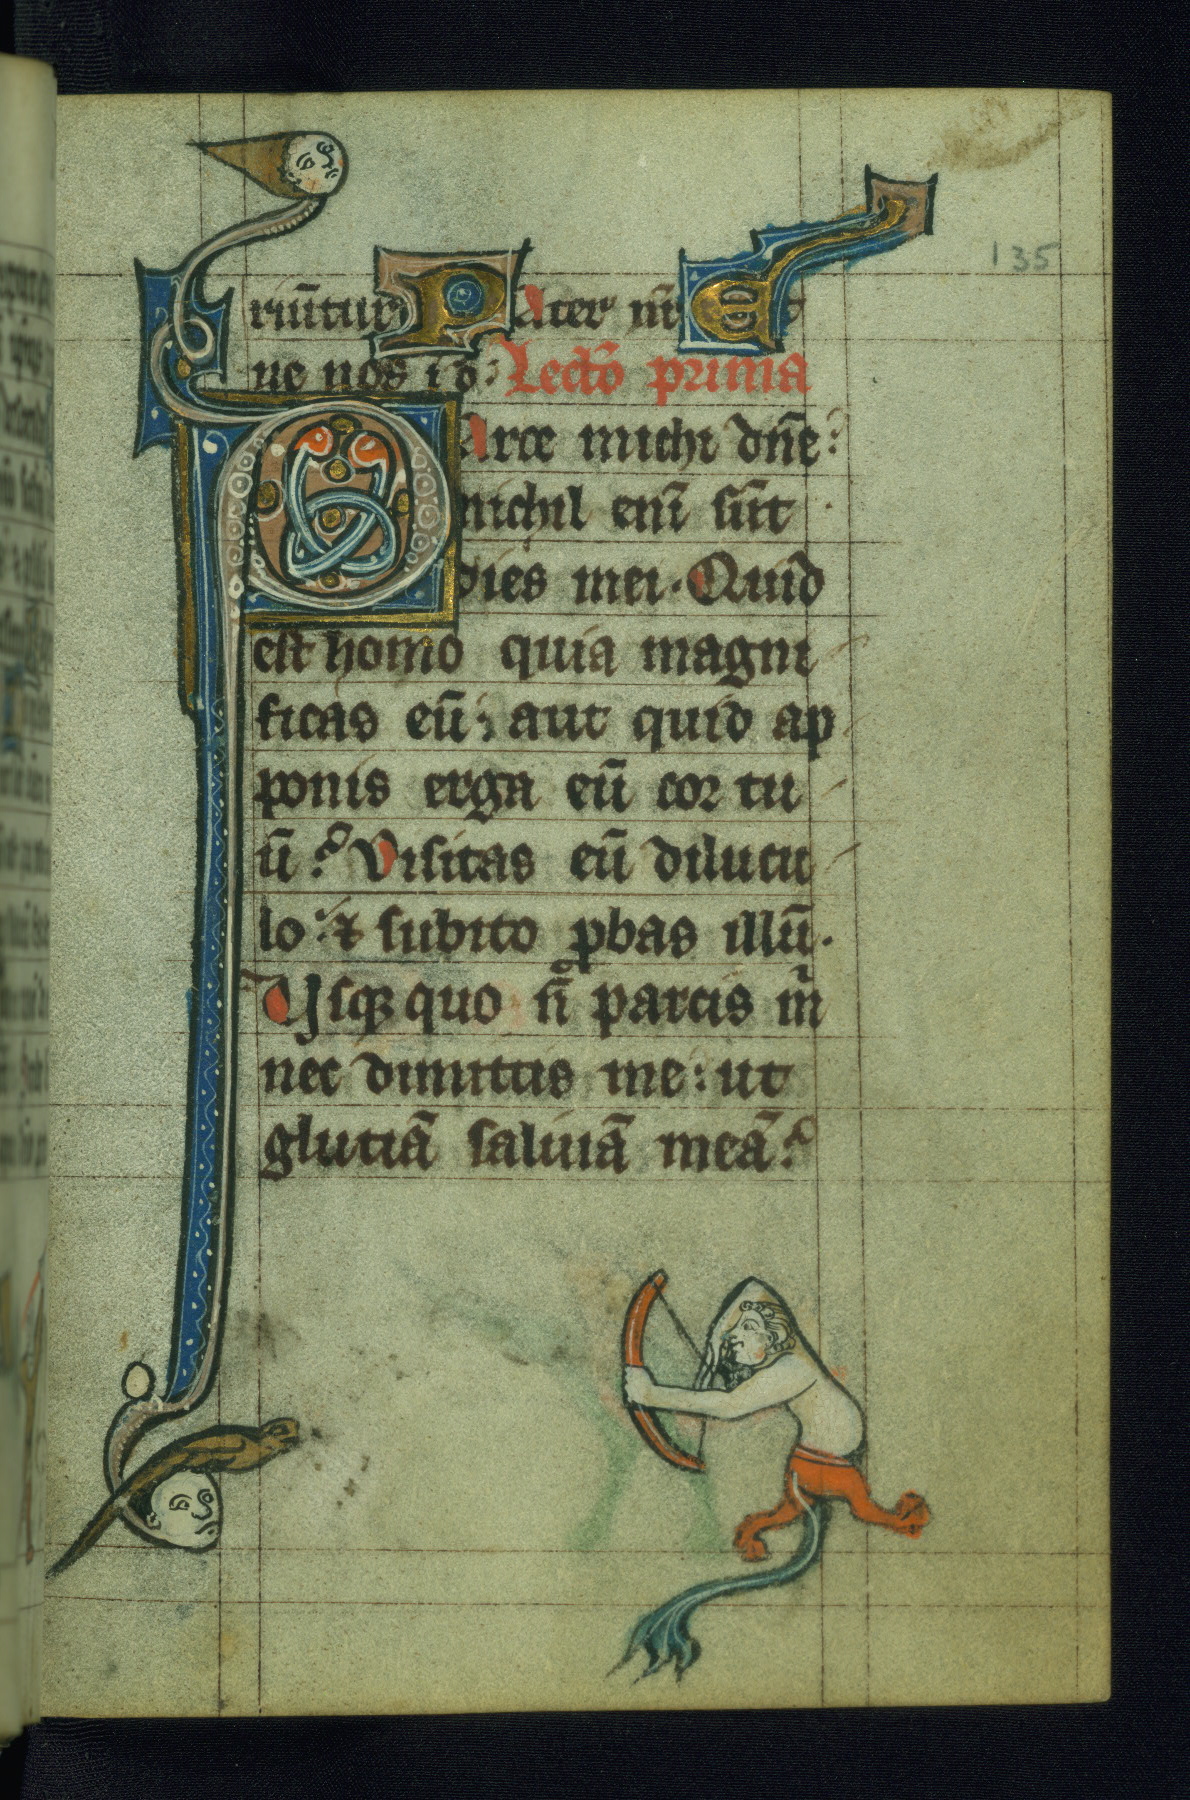 135
riūtur Pater nr̄ Et
ne nos i d̄: Lectō prima
Parce michi dn̄e:
nichil enī sūt
dies mei. Quid
est homo quia magni
ficas eū; aut quid ap
ponis erga eū cor tu
ū? Visitas eū dilucu
lo: ⁊ subito ꝓbas illū.
Usqꝫ quo n̄ parcis m̄
nec dimittis me: ut
glutiā saliuā meā?